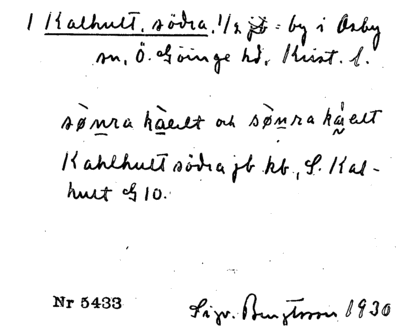 1 Kalhult, södra, 1/2 jb = by i Osby
sn, Ö. Göinge hd, Krist. l.
sònra kàelt och sònra kåelt
Kahlhult södra jb kb, S. Kal-
hult G 10.
Nr 5433
Sigv. Bengtsson 1930